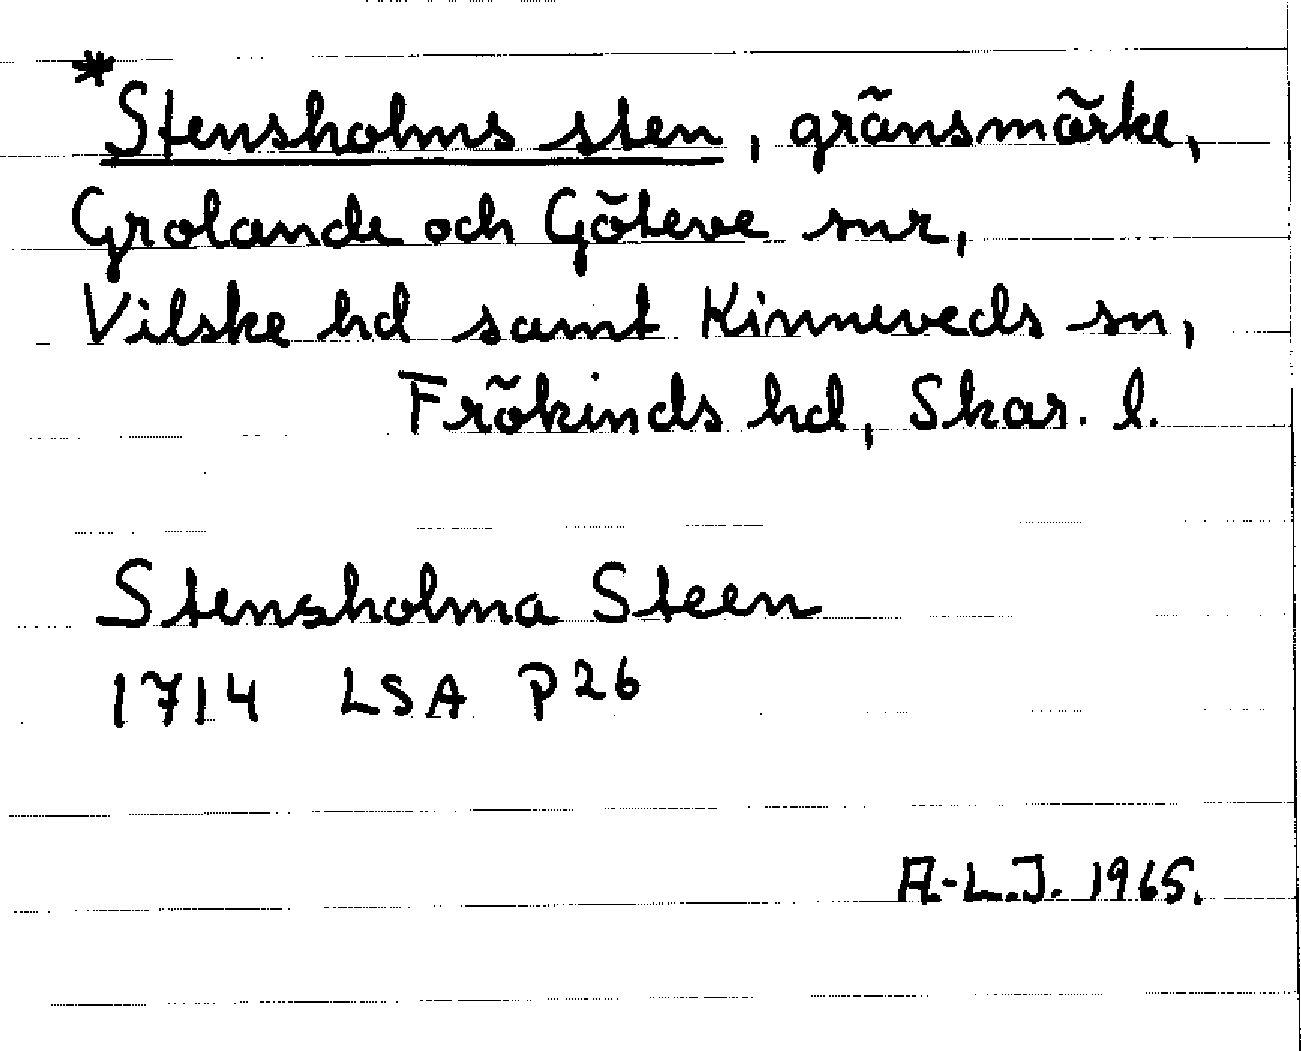 *Stensholms sten, gränsmärke,
Grolande och Göteve snr,
Vilske hd samt Kinneveds sn,
Frökinds hd, Skar. l.
Stensholma Steen
1714 LSA P26
A.-L.J. 1965.